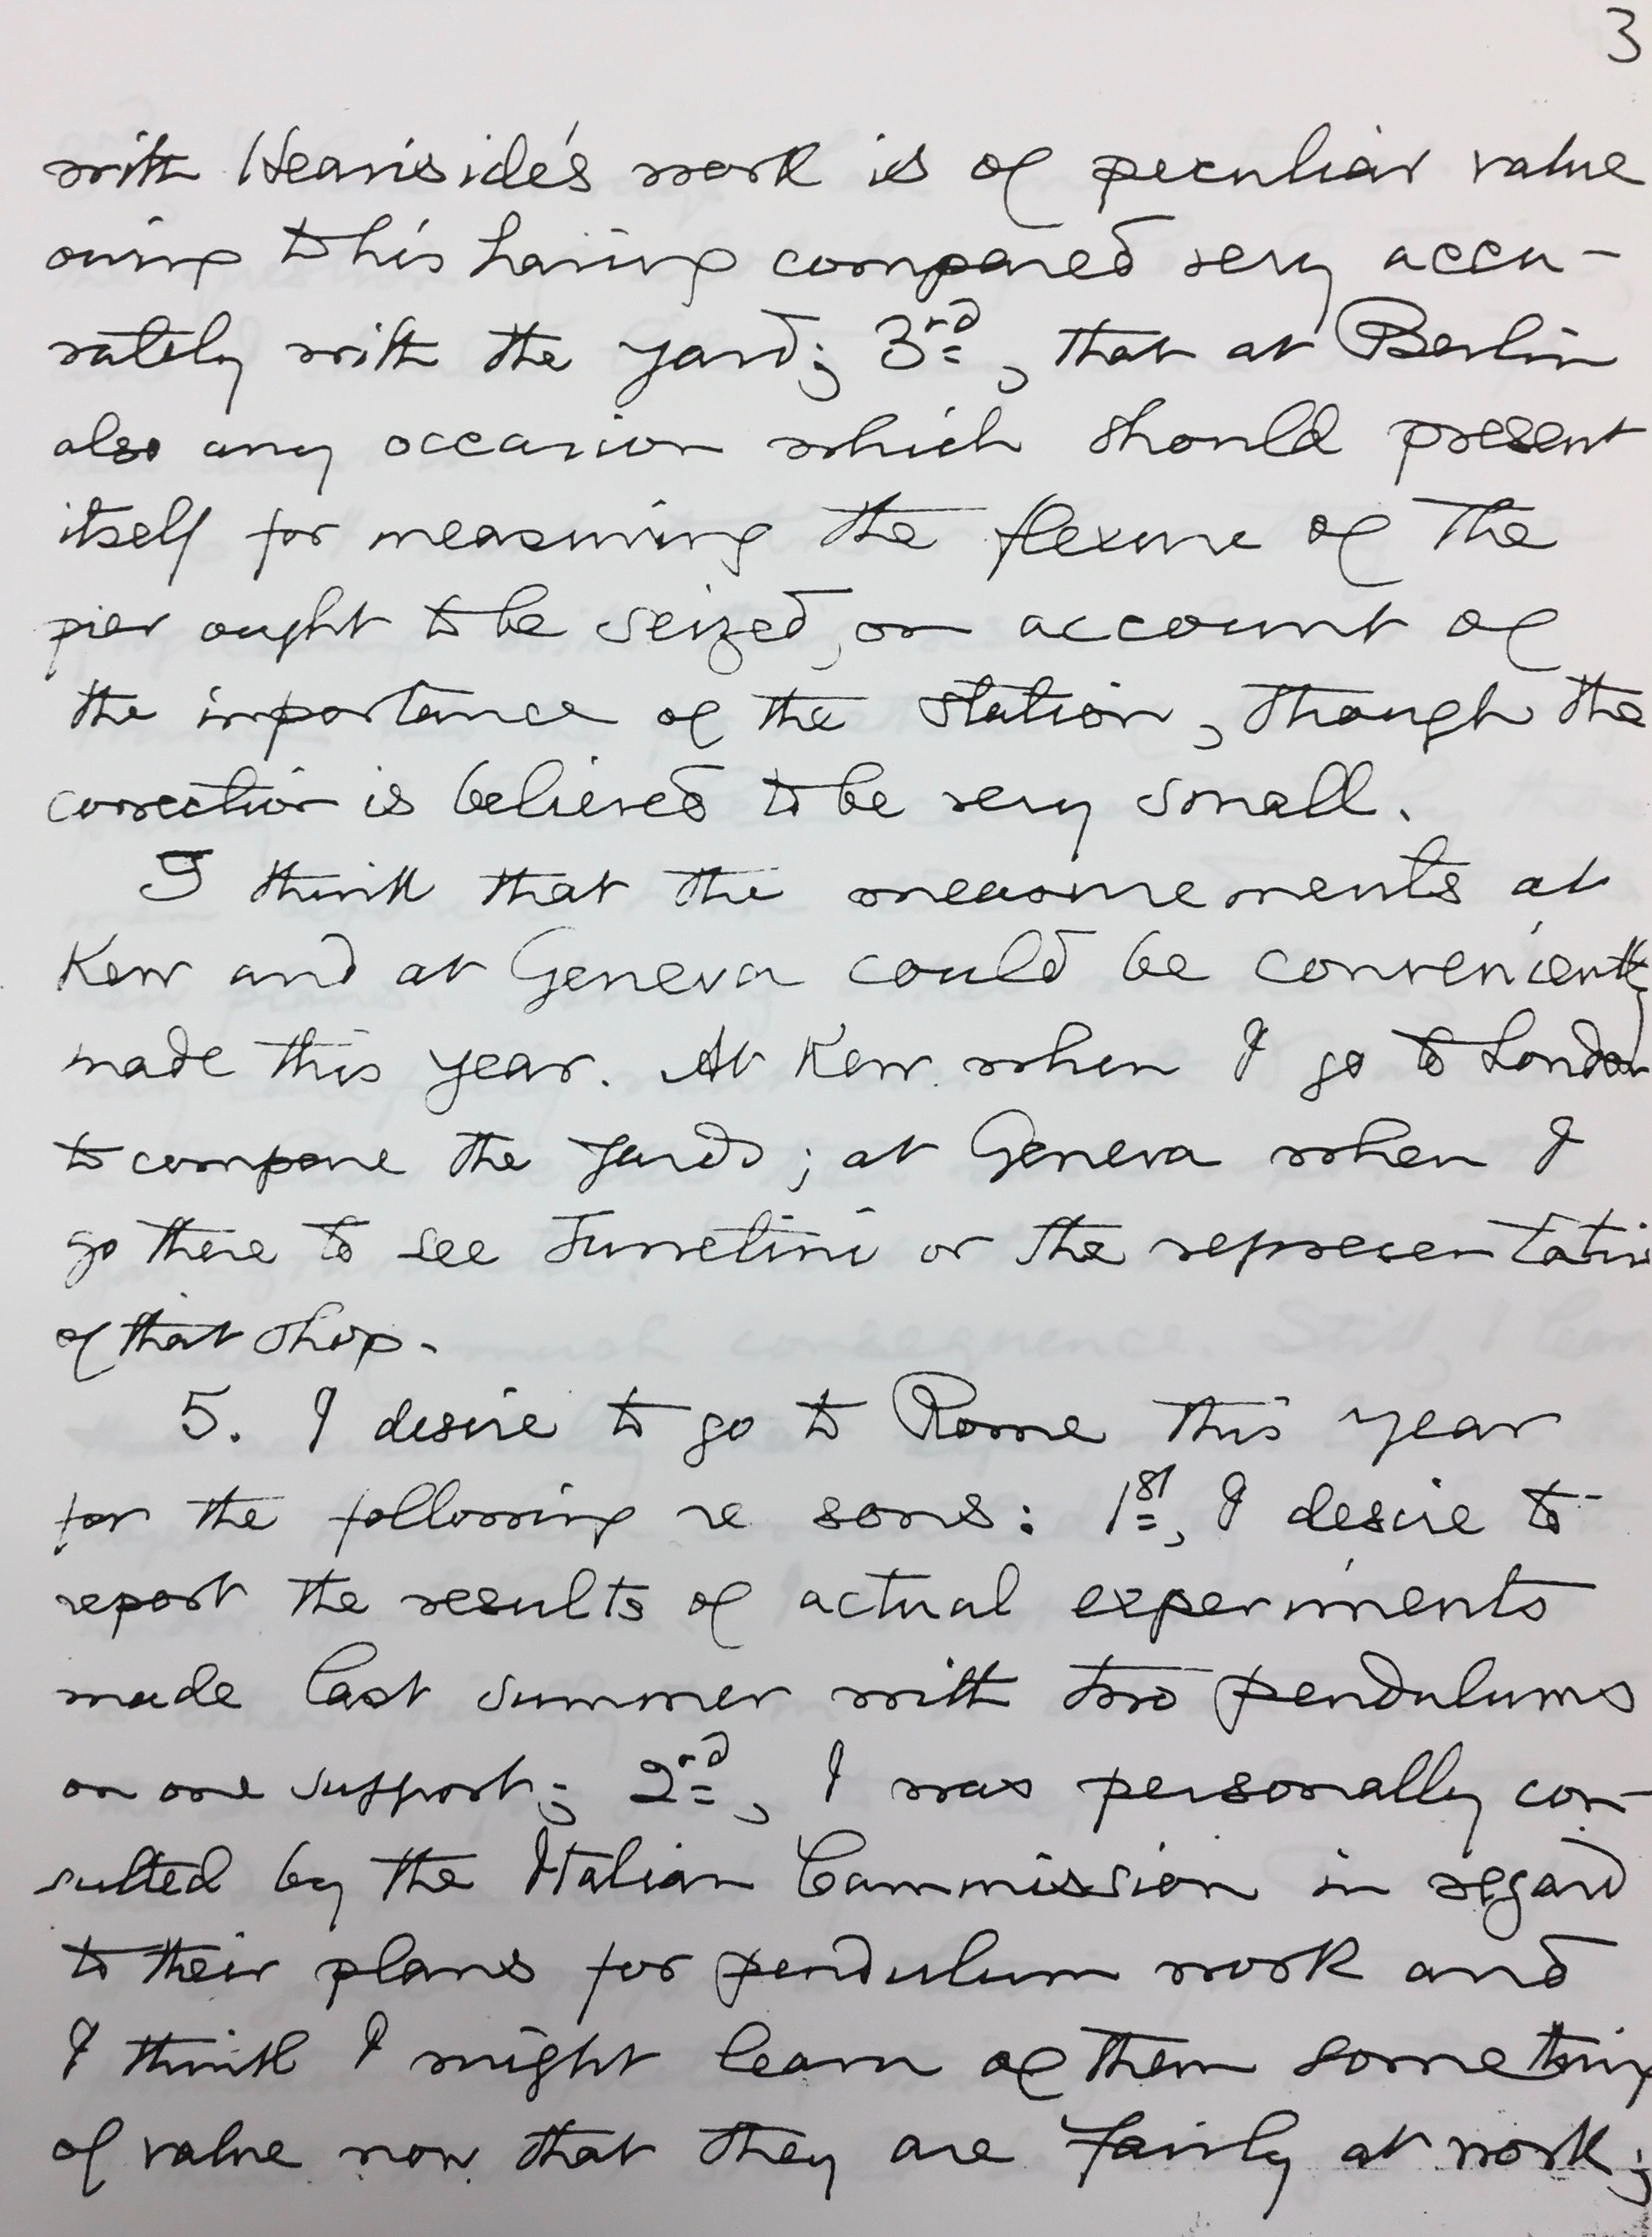 3
with Heaviside's work is of peculiar value
owing to his having compared very accu-
rately with the yard; 3rd, that at Berlin
also any occasion which should present
itself for measuring the flexure of the
pier ought to be seized, on account of
the importance of the station, though the
correction is believed to be very small.
I think that the measurements at
Kew and at Geneva could be conveniently
made this year. At Kew when I go to London
to compare the yards; at Geneva when I
go there to see Turretini or the representativ
of that shop.
5. I desire to go to Rome this year
for the following re sons: 1st, I desire to
report the results of actual experiments
made last summer with two pendulums
on one support; 2nd, I was personally con-
sulted by the Italian Commission in regard
to their plans for pendulum work and
I think I might learn of them something
of value now that they are fairly at work;